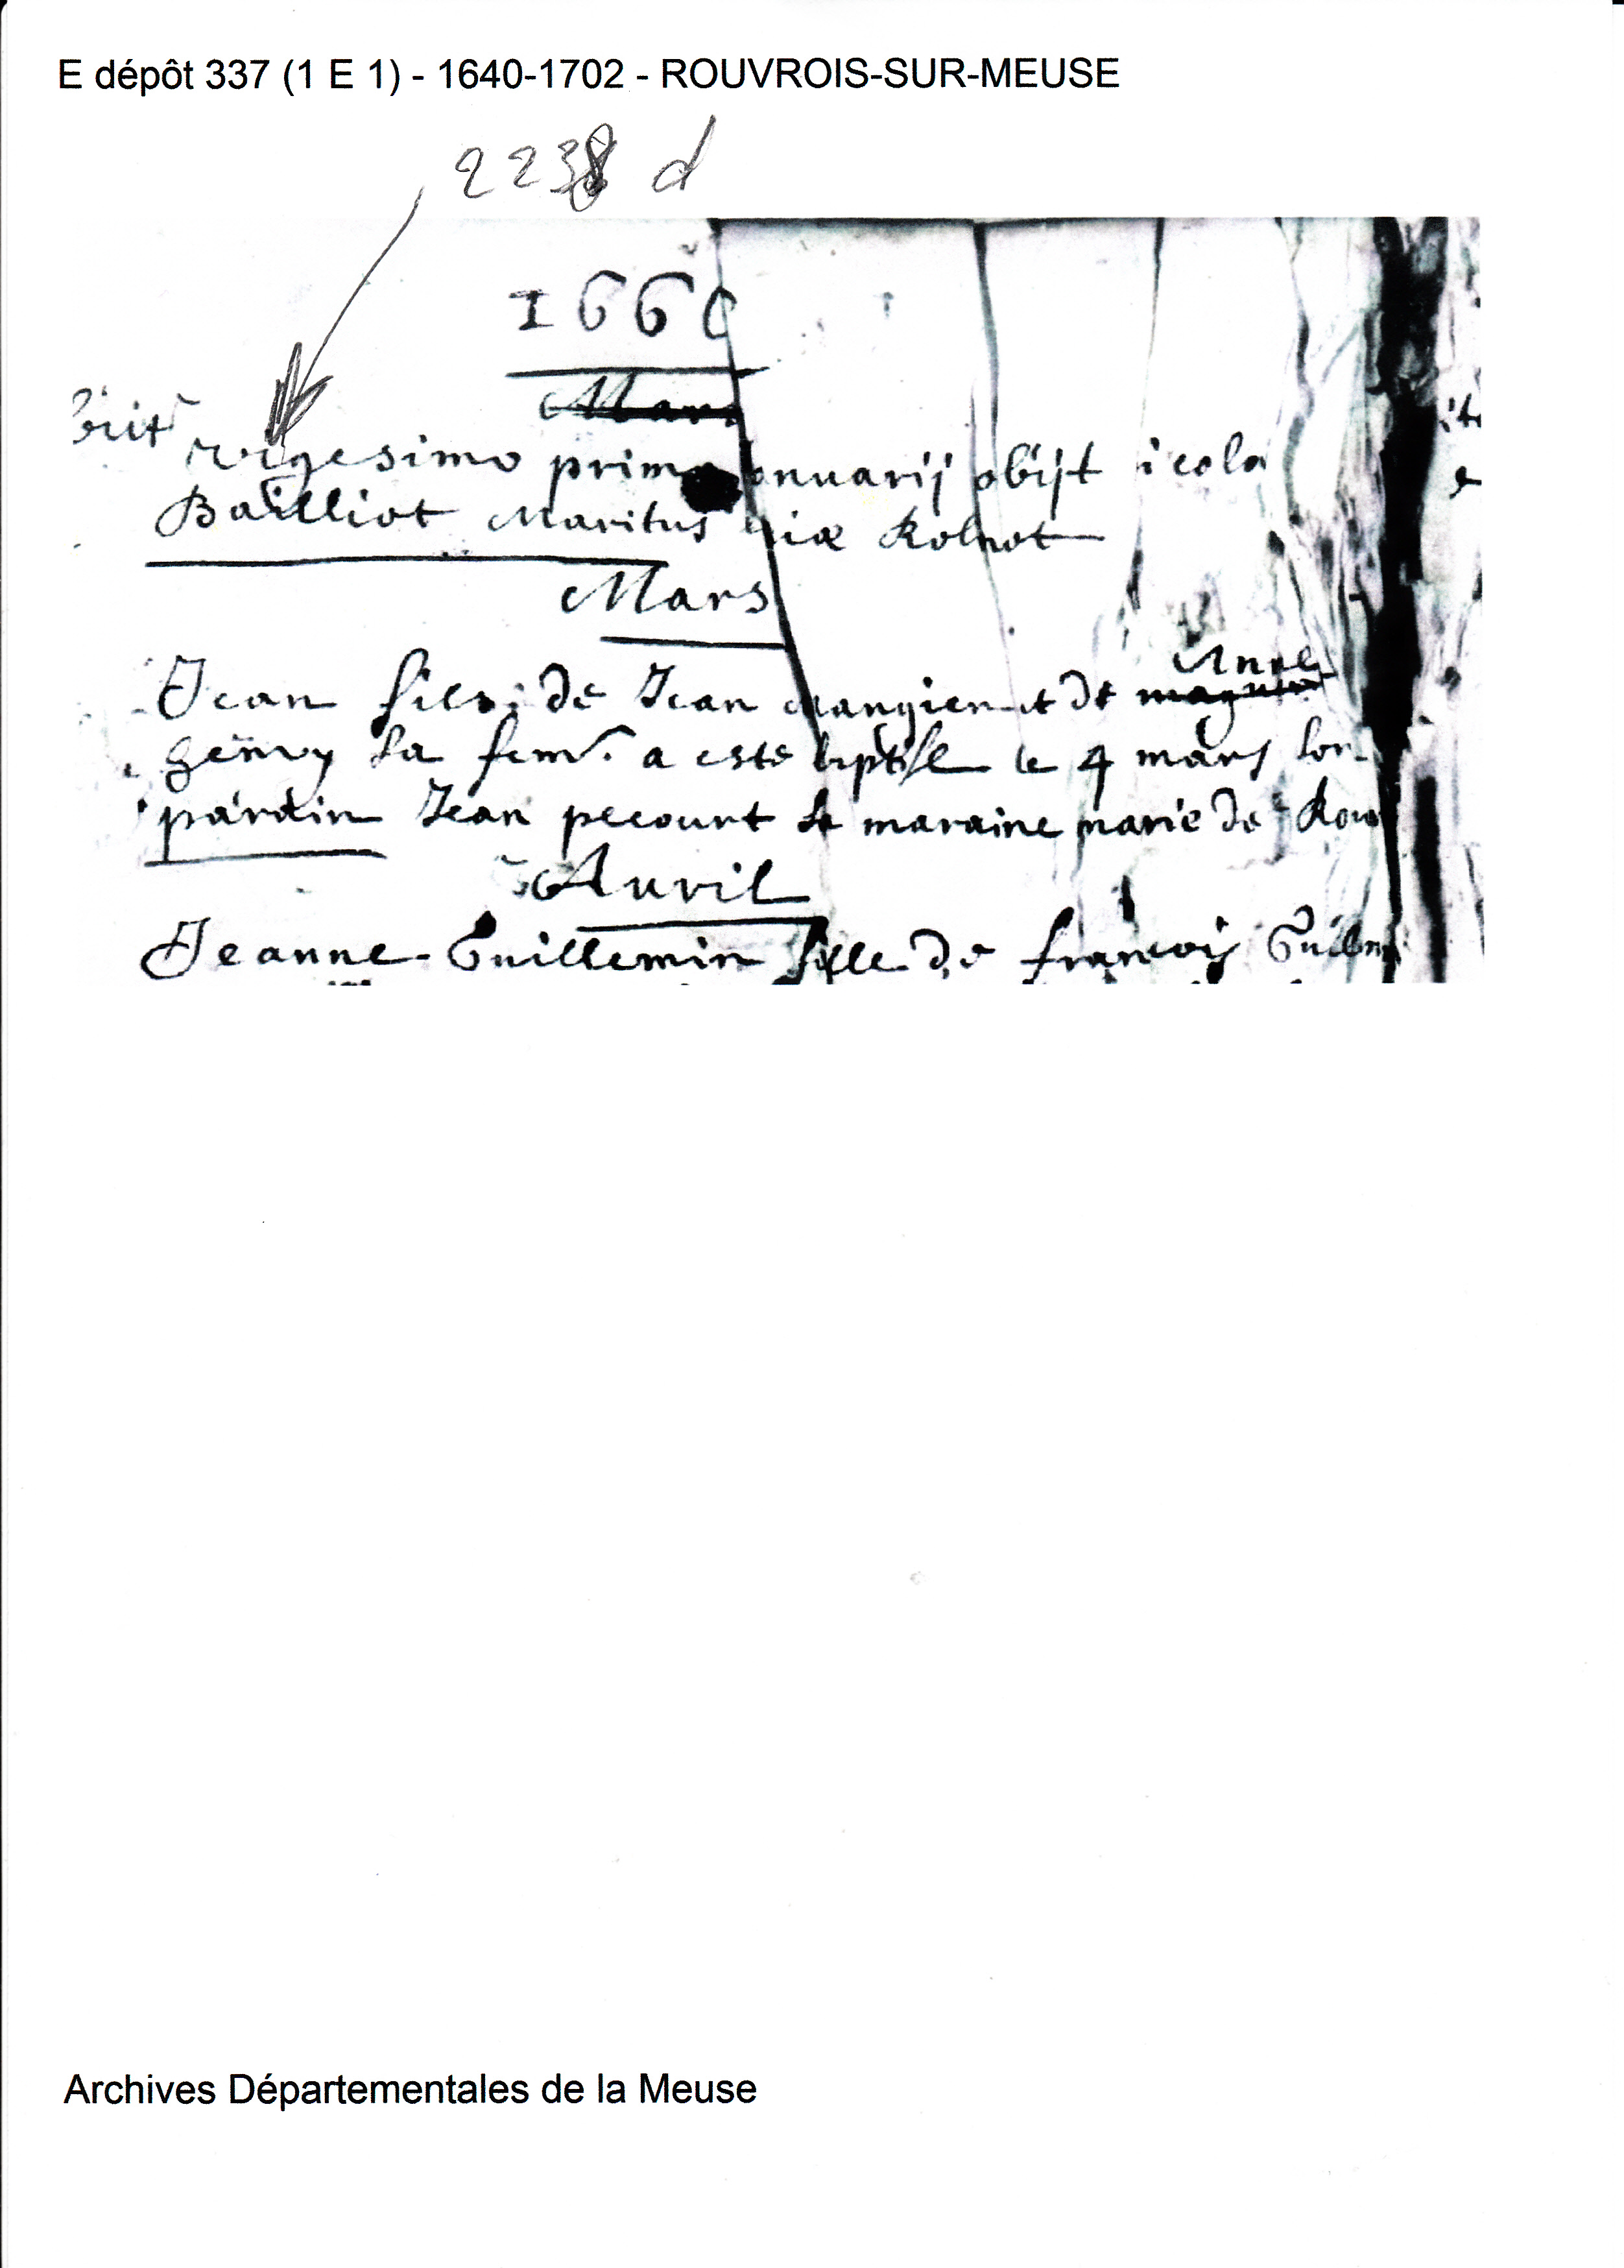 E dépôt 337 (1 E 1) - 1640-1702 - ROUVROIS-SUR-MEUSE
2238 d
1660
Mars
obiit
vigesimo primo Januarij obijt Nicola
Bailliot Maritus Rolnot
Mars
Jean fils de Jean Mangienot de Anne
henry sa fem. a este baptise le 4 mars son
parain Jean pecourt sa maraine marie de Rou
Auvril
Jeanne Guillemin fille de francois Guillem
Archives Départementales de la Meuse